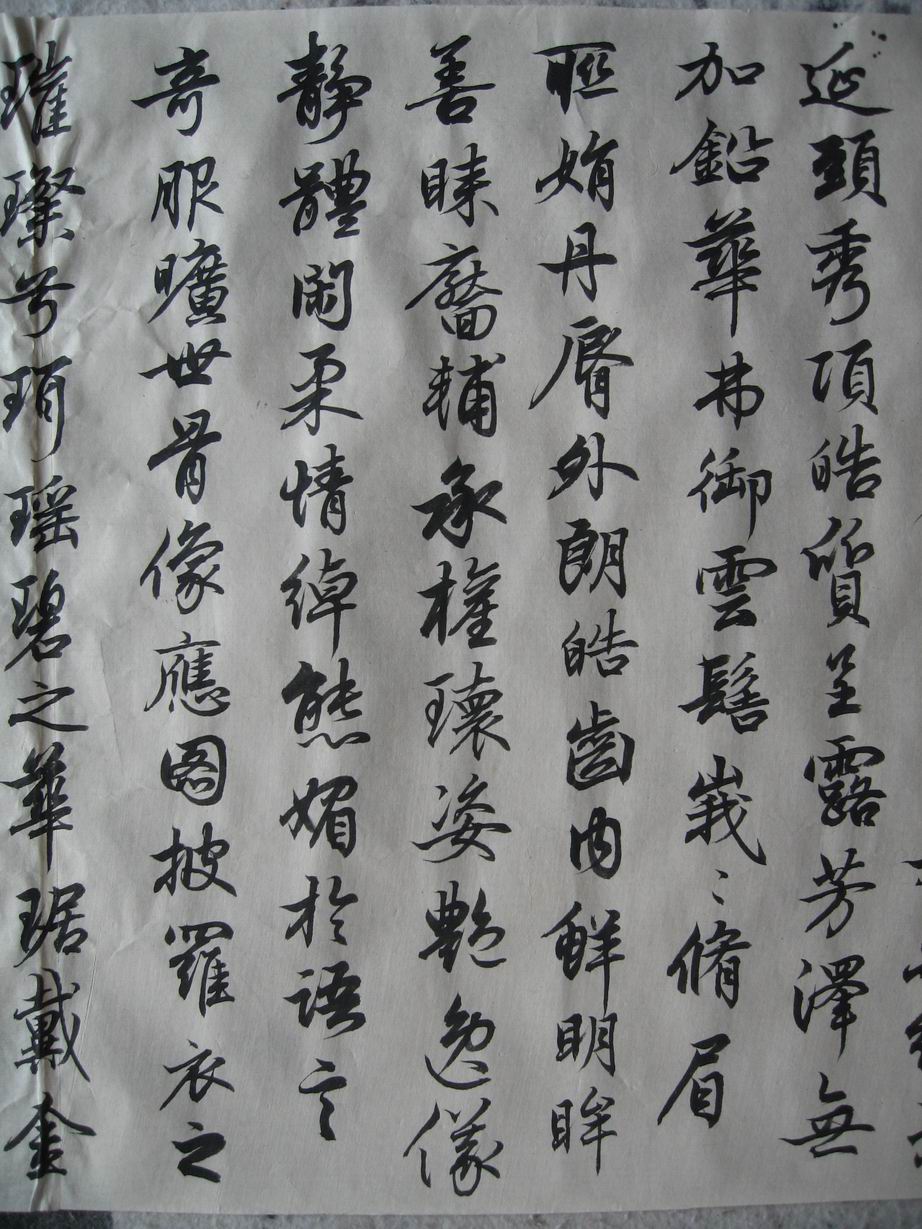 延頸秀項皓質呈露芳澤無
加鉛華弗御雲髻峩〻脩眉
聯娟丹脣外朗皓齒內鮮明眸
善睞靨輔承權瓌姿艷逸儀
靜體閑柔情綽態媚於語言
奇服曠世骨像應圖披羅衣之
璀璨兮珥瑶碧之華琚戴金